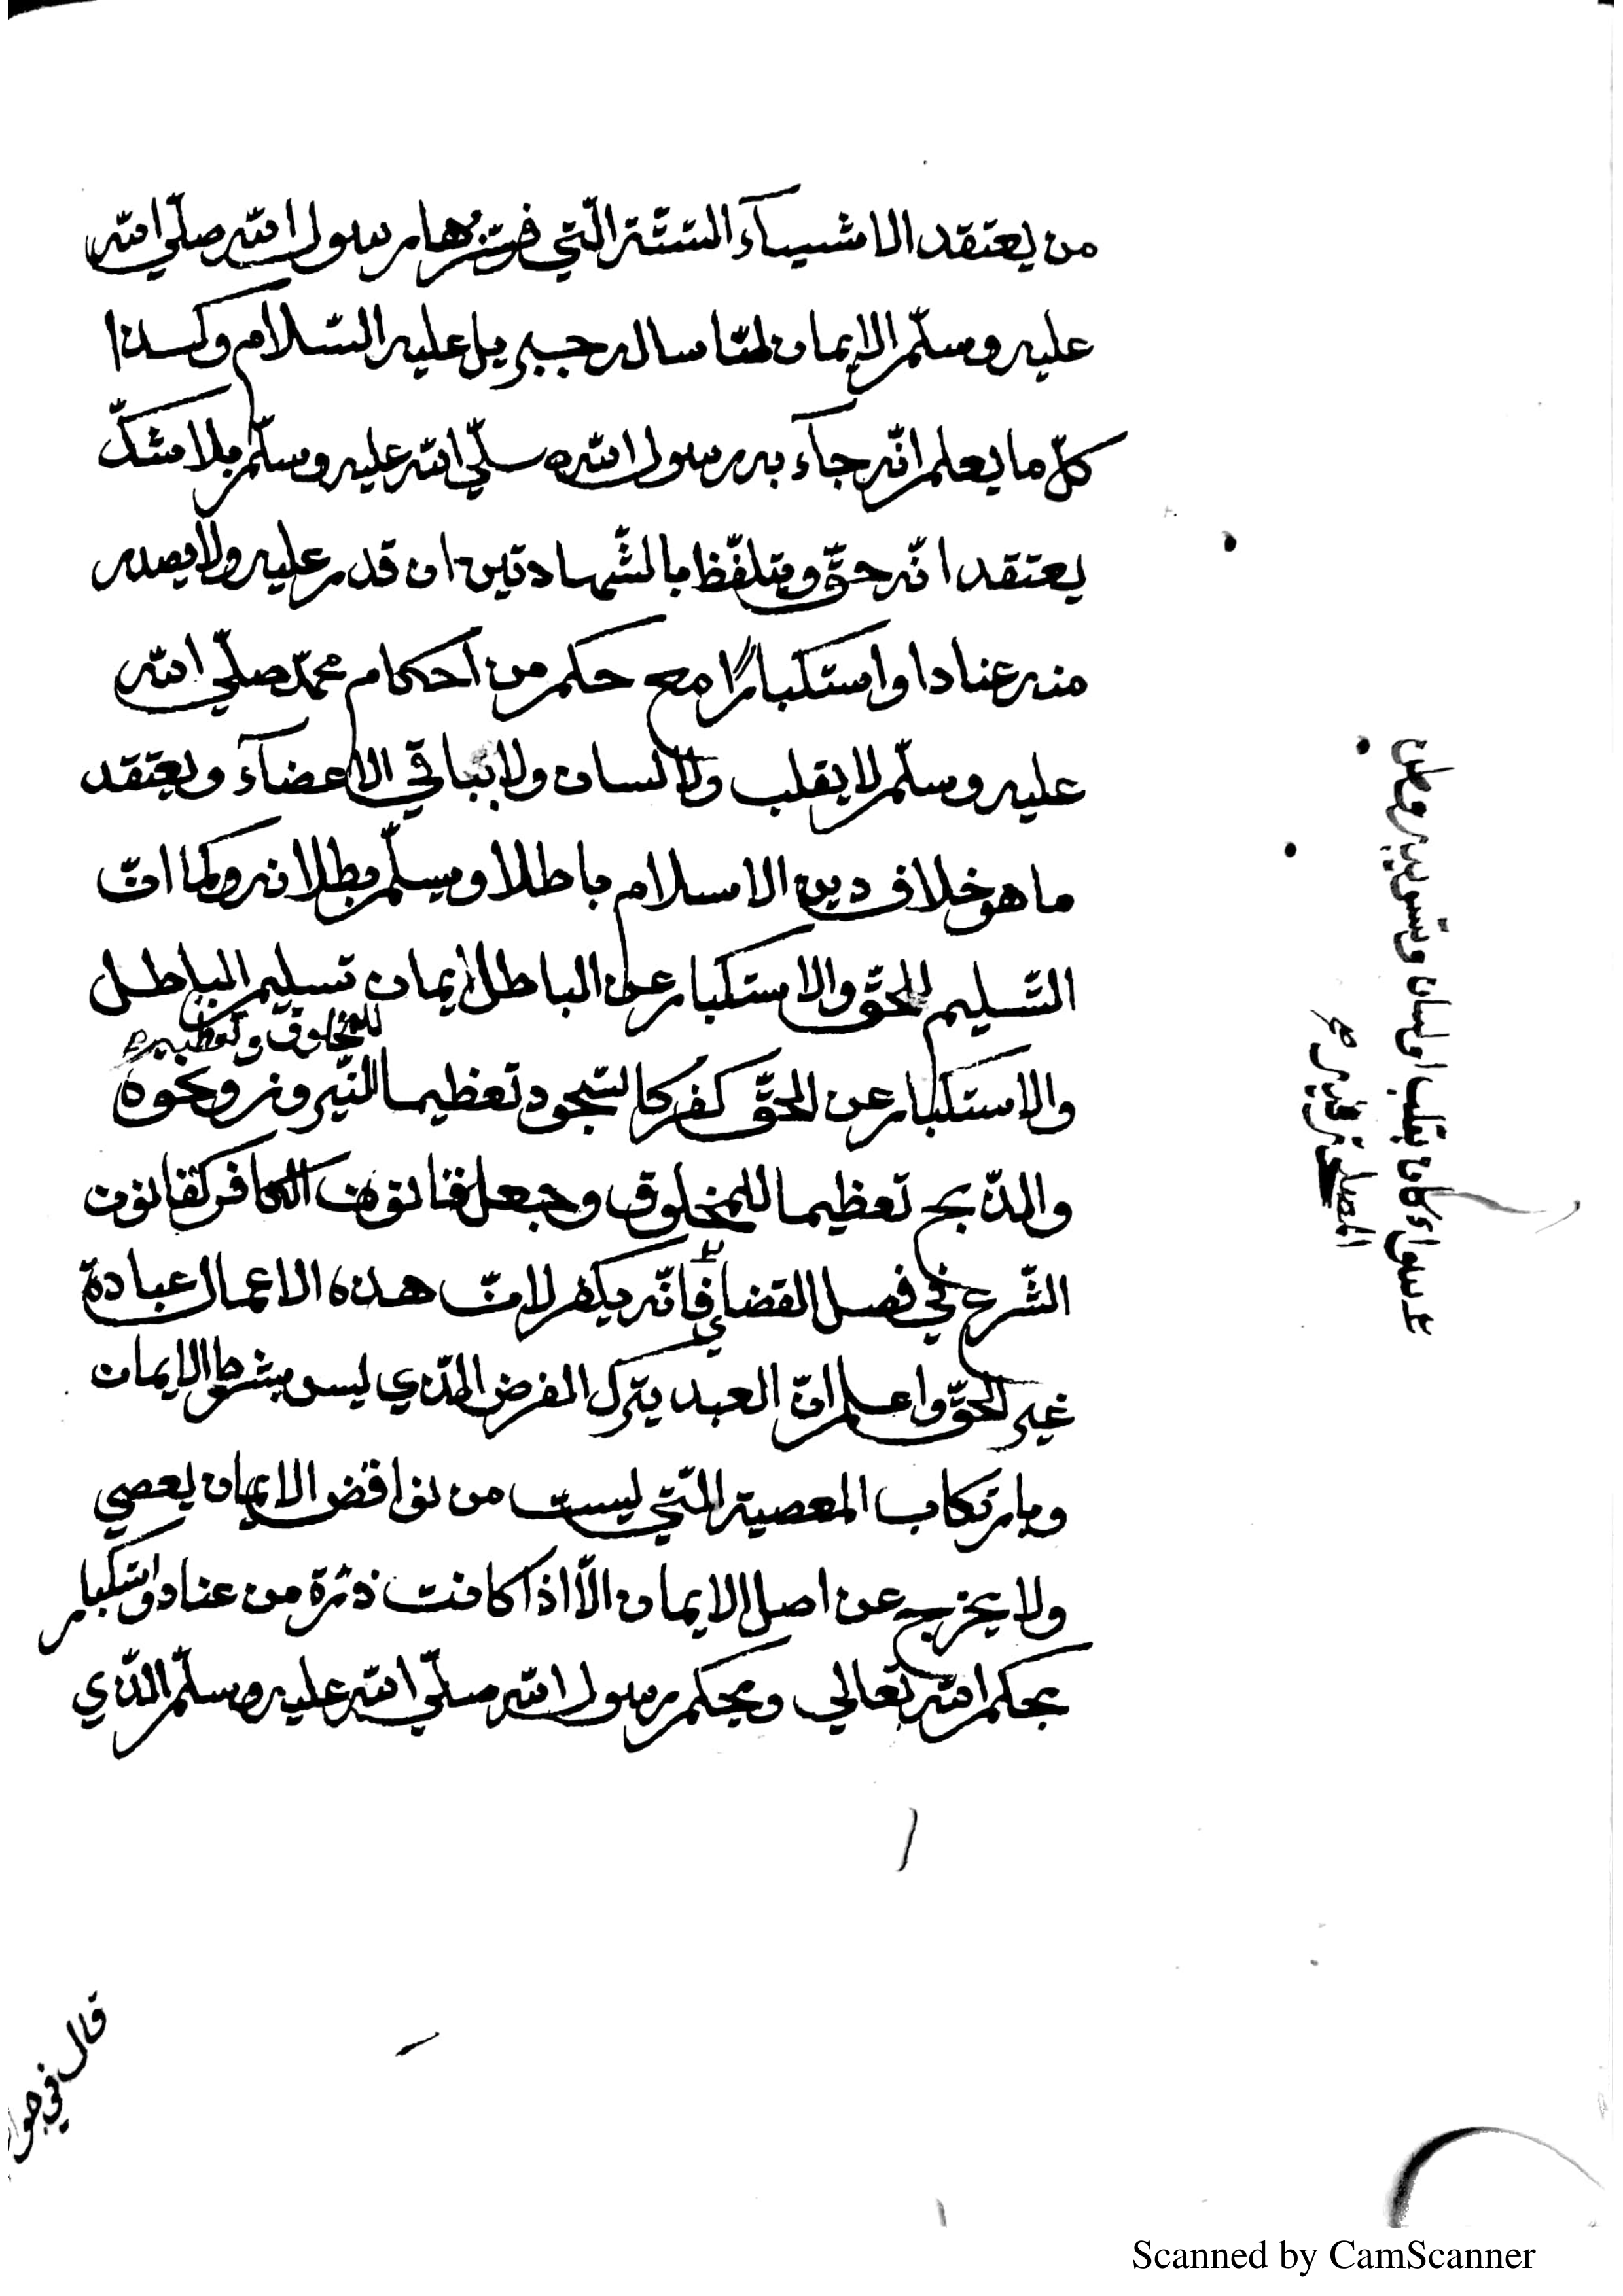 من يعتقد الاشيآء الستّة الّتي فسّر بها رسول الله صلّي الله
عليه وسلّم الايمان لمّا ساله جبريل عليه السّلام وكذا
كلّ ما يعلم انّه جآء به رسول الله صلّي الله عليه وسلّم بلا شكّ
يعتقد انّه حقّ ويتلفّظ بالشّهادتين ان قدر عليه ولا يصدر
منه عنادا واستكبارًا مع حكم من احكام محمّد صلّي الله
عليه وسلّم لا بقلب ولا لسان ولا بباقي الاعضآء ويعتقد
ما هو خلاف دين الاسلام باطلا ويسلّم بطلانه وكما انّ
التّسليم للحقّ والاستكبار عن الباطل ايمان تسليم الباطل
للمخلوق وتعظيمه
والاستكبار عن الحقّ كفر كالسّجود تعظيما للنّيروز ونحوه
والذّبح تعظيما للمخلوق وجعل قانون الكافر كقانون
الشّرع في فصل القضايا فانّه يكفر لانّ هذه الاعمال عبادة
غير الحقّ واعلم انّ العبد يترك الفرض الّذي ليس بشرط الايمان
وبارتكاب المعصية الّتي ليست من نواقض الايمان يعصي
ولا يخرج عن اصل الايمان الّا اذا كانت ذرّة من عناد واستكبار
بحكم الله تعالي وبحكم رسول الله صلّي الله عليه وسلّم الّذي
قال في جوا
Scanned by CamScanner